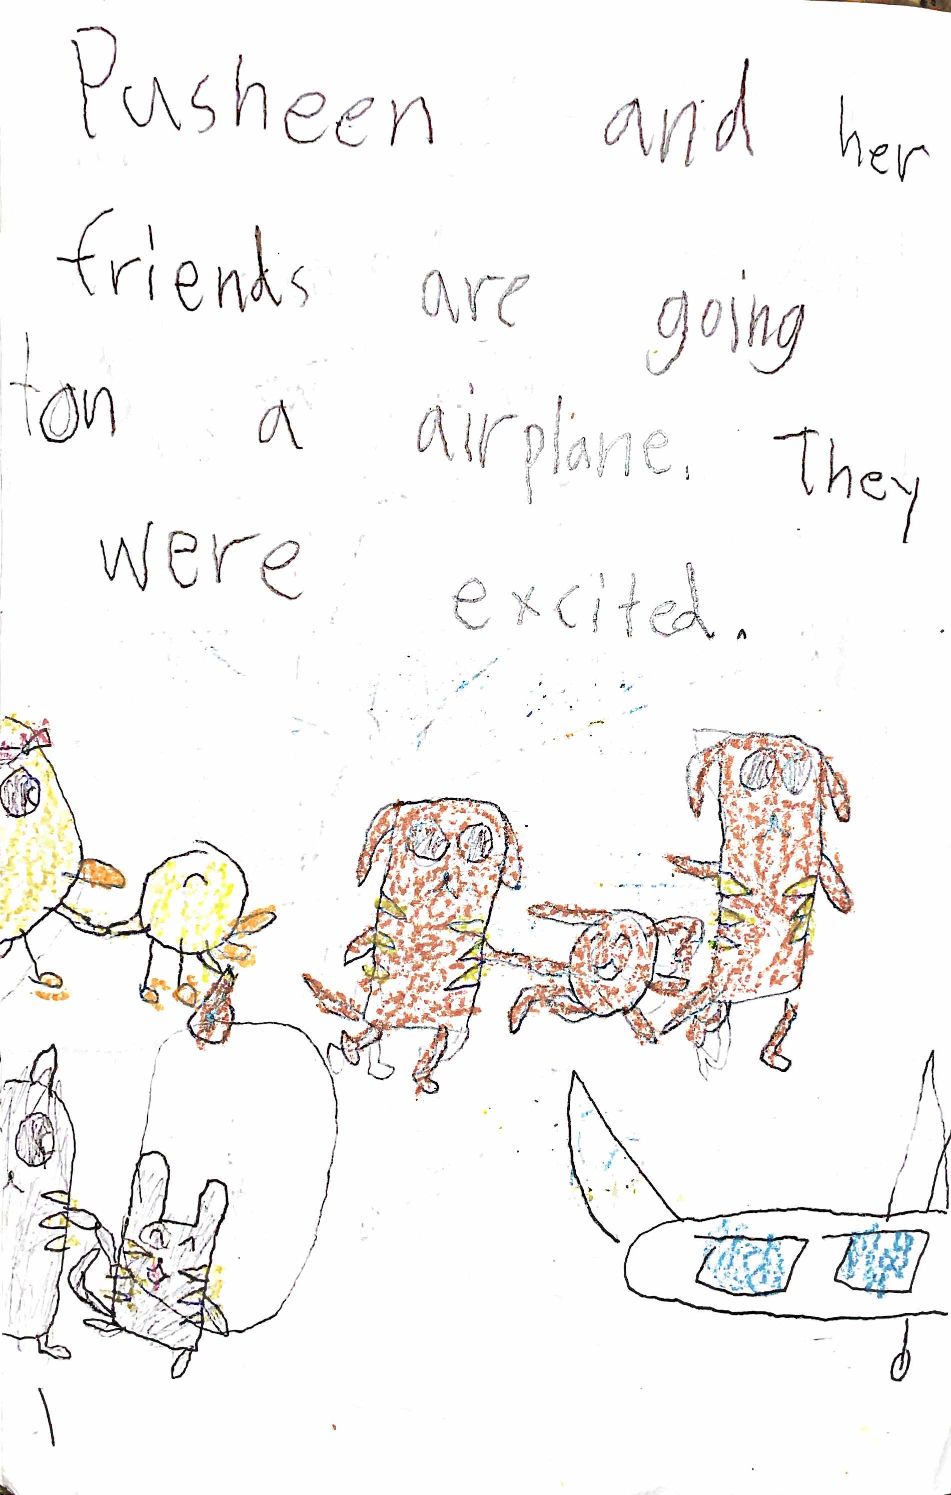 Pusheen and her
friends are going
ton a airplane. They
were excited.